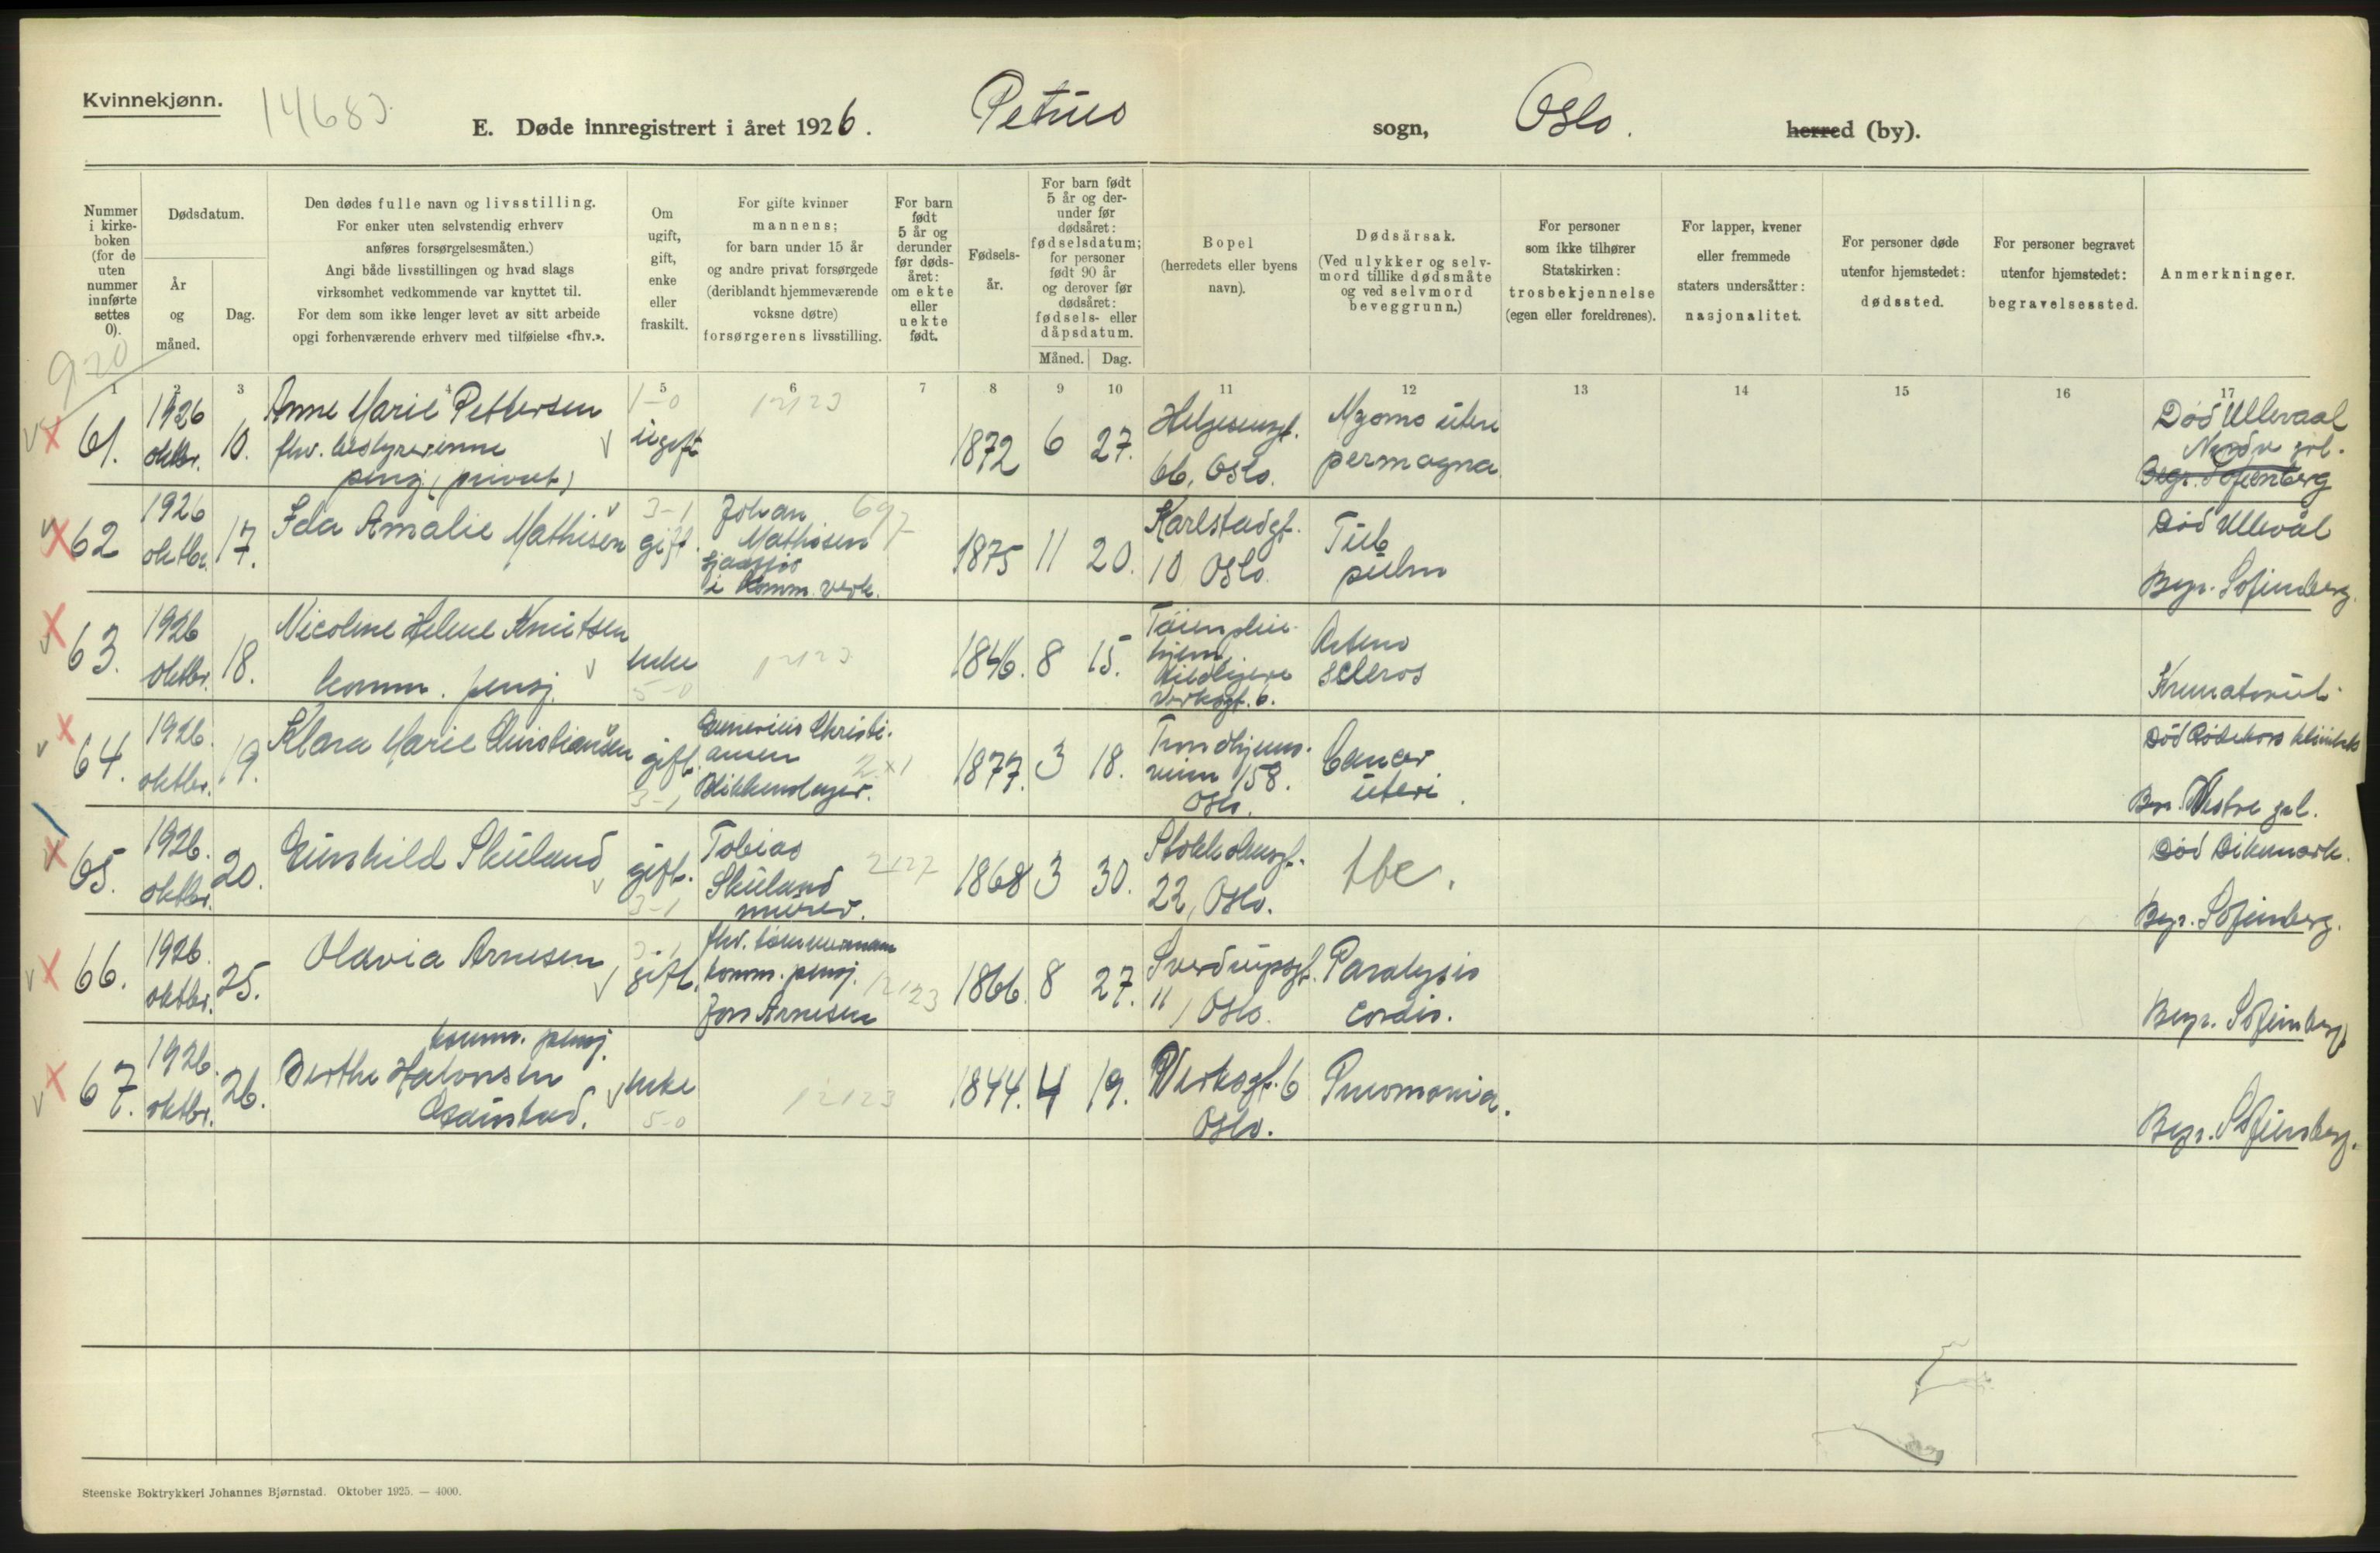 Kvinnekjønn.
E. Døde innregistrert i året 1926. Petrus sogn, Oslo. herred (by).
Nummer i kirke-boken (for de uten nummer innførte settes 0).
Dødsdatum.
År og måned.
Dag.
Den dødes fulle navn og livsstilling.
For enker uten selvstendig erhverv
anføres forsørgelsesmåten.)
Angi både livsstillingen og hvad slags
virksomhet vedkommende var knyttet til.
For dem som ikke lenger levet av sitt arbeide
opgi forhenværende erhverv med tilføielse «fhv.».
Om ugift, gift, enke eller fraskilt.
For gifte kvinner
mannens;
for barn under 15 år
og andre privat forsørgede
(deriblandt hjemmeværende
voksne døtre)
forsørgerens livsstilling.
For barn født 5 år og derunder før døds-året: om ekte eller uekte født.
Fødsels-år.
For barn født 5 år og der-under før dødsåret: fødselsdatum; for personer født 90 år og derover før dødsåret: fødsels- eller dåpsdatum.
Måned. Dag.
Bopel
(herredets eller byens
navn).
Dødsårsak.
(Ved ulykker og selv-
mord tillike dødsmåte
og ved selvmord
beveggrunn.)
For personer
som ikke tilhører
Statskirken:
trosbekjennelse
(egen eller foreldrenes).
For lapper, kvener
eller fremmede
staters undersåtter:
nasjonalitet.
For personer døde
utenfor hjemstedet:
dødssted.
For personer begravet
utenfor hjemstedet:
begravelsessted.
Anmerkninger.
920
1 2 3 4 5 6 7 8 9 10 11 12 13 14 15 16 17
61. 1926 oktbr. 10. Anne Marie Pettersen
fhv. bestyrerinne
pensj. (privat)
1-0
ugift
12123
1872 6 27.
Helgesensgt.
66, Oslo.
Myoma uteri
permagna
Død Ullevaal
Nordre grl.
Begr. Sofienberg
62 1926 oktbr. 17. Ida Amalie Mathisen
3-1
gift.
Johan
Mathisen
i komm. verk.
697
1875 11 20.
Karlstadgt.
10 Oslo.
Tub
pulm
Død Ullevål
Begr. Sofienberg.
63. 1926 oktbr. 18. Nicoline Helene Knutsen
komm. pensj.
enke
5-0
12123
1846. 8 15.
Tøien pleie-
hjem,
Verksgt. 6.
Arterio
scleros
Krematoriet.
64. 1926. oktbr. 19. Klara Marie Christiansen
gift.
3-1
Christi-
ansen
Blikkenslager.
2x1
1877. 3 18.
Trondhjems-
veien 158.
Oslo.
Cancer
uteri.
Død Rødekors klinikk
Begr. Vestre grl.
65. 1926. oktbr. 20. Gunhild Skuland
gift.
3-1
Tobias
Skuland
murer.
2127
1868 3 30.
Stokholmsgt.
22, Oslo.
tbc.
Død Dikemark.
Begr. Sofienberg.
66. 1926. oktbr. 25. Olavia Arnesen
3-1
gift.
fhv. tømmermann
komm. pensj.
Jon Arnesen
12123
1866. 8 27.
Sverdrupsgt.
11, Oslo.
Paralysis
cordis.
Begr. Sofienberg
67. 1926. oktbr. 26. komm. pensj.
Berthe Halvorsen
enke
5-0
12123
1844. 4 19.
Verksgt. 6
Oslo.
Pneumonia.
Begr. Sofienberg.
Steenske Boktrykkeri Johannes Bjørnstad. Oktober 1925. — 4000.